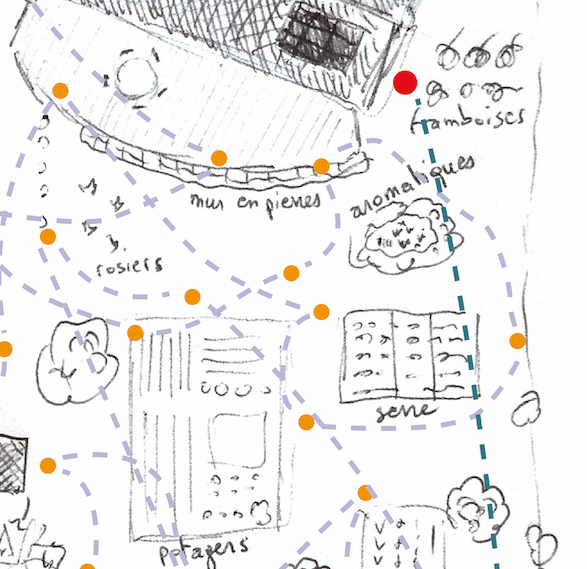 framboises
aromatiques
mur en pierres
rosiers
serre
potagers